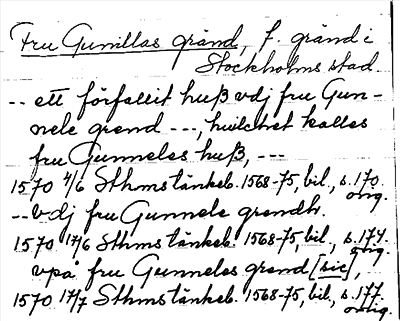 Fru Gunillas gränd, f. gränd i
Stockholms stad
-- ett förfallit huß vdj fru Gun-
nele grend ---, huilchet kalles
fru Gunneles huß, ---
1570 4/6 Sthms tänkeb. 1568-75, bil., s. 170
orig.
-- vdj fru Gunnele grendh.
1570 17/6 Sthms tänkeb. 1568-75, bil., s. 174.
orig.
vpå fru Gunneles grend [sic],
1570 17/7 Sthms tänkeb. 1568-75, bil., s. 177.
orig.